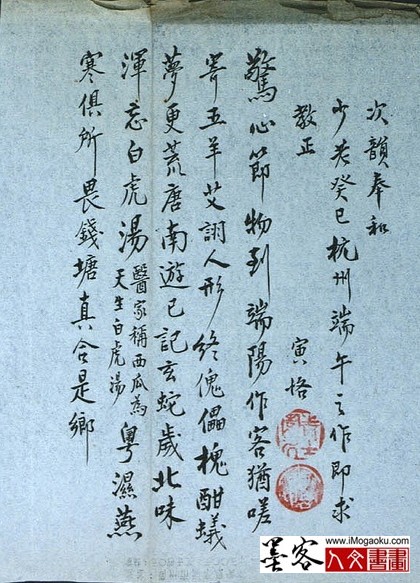 次韻奉和
少老癸巳杭州端午之作即求
教正
寅恪
驚心節物到端陽作客猶嗟
寄五羊艾詡人形終傀儡槐酣蟻
夢更荒唐南遊已記玄蛇歲北味
渾忘白虎湯
醫家稱西瓜為
天生白虎湯
粵濕燕
寒俱所畏錢塘真合是鄉
www.iMogaoku.com
墨客人文書畫